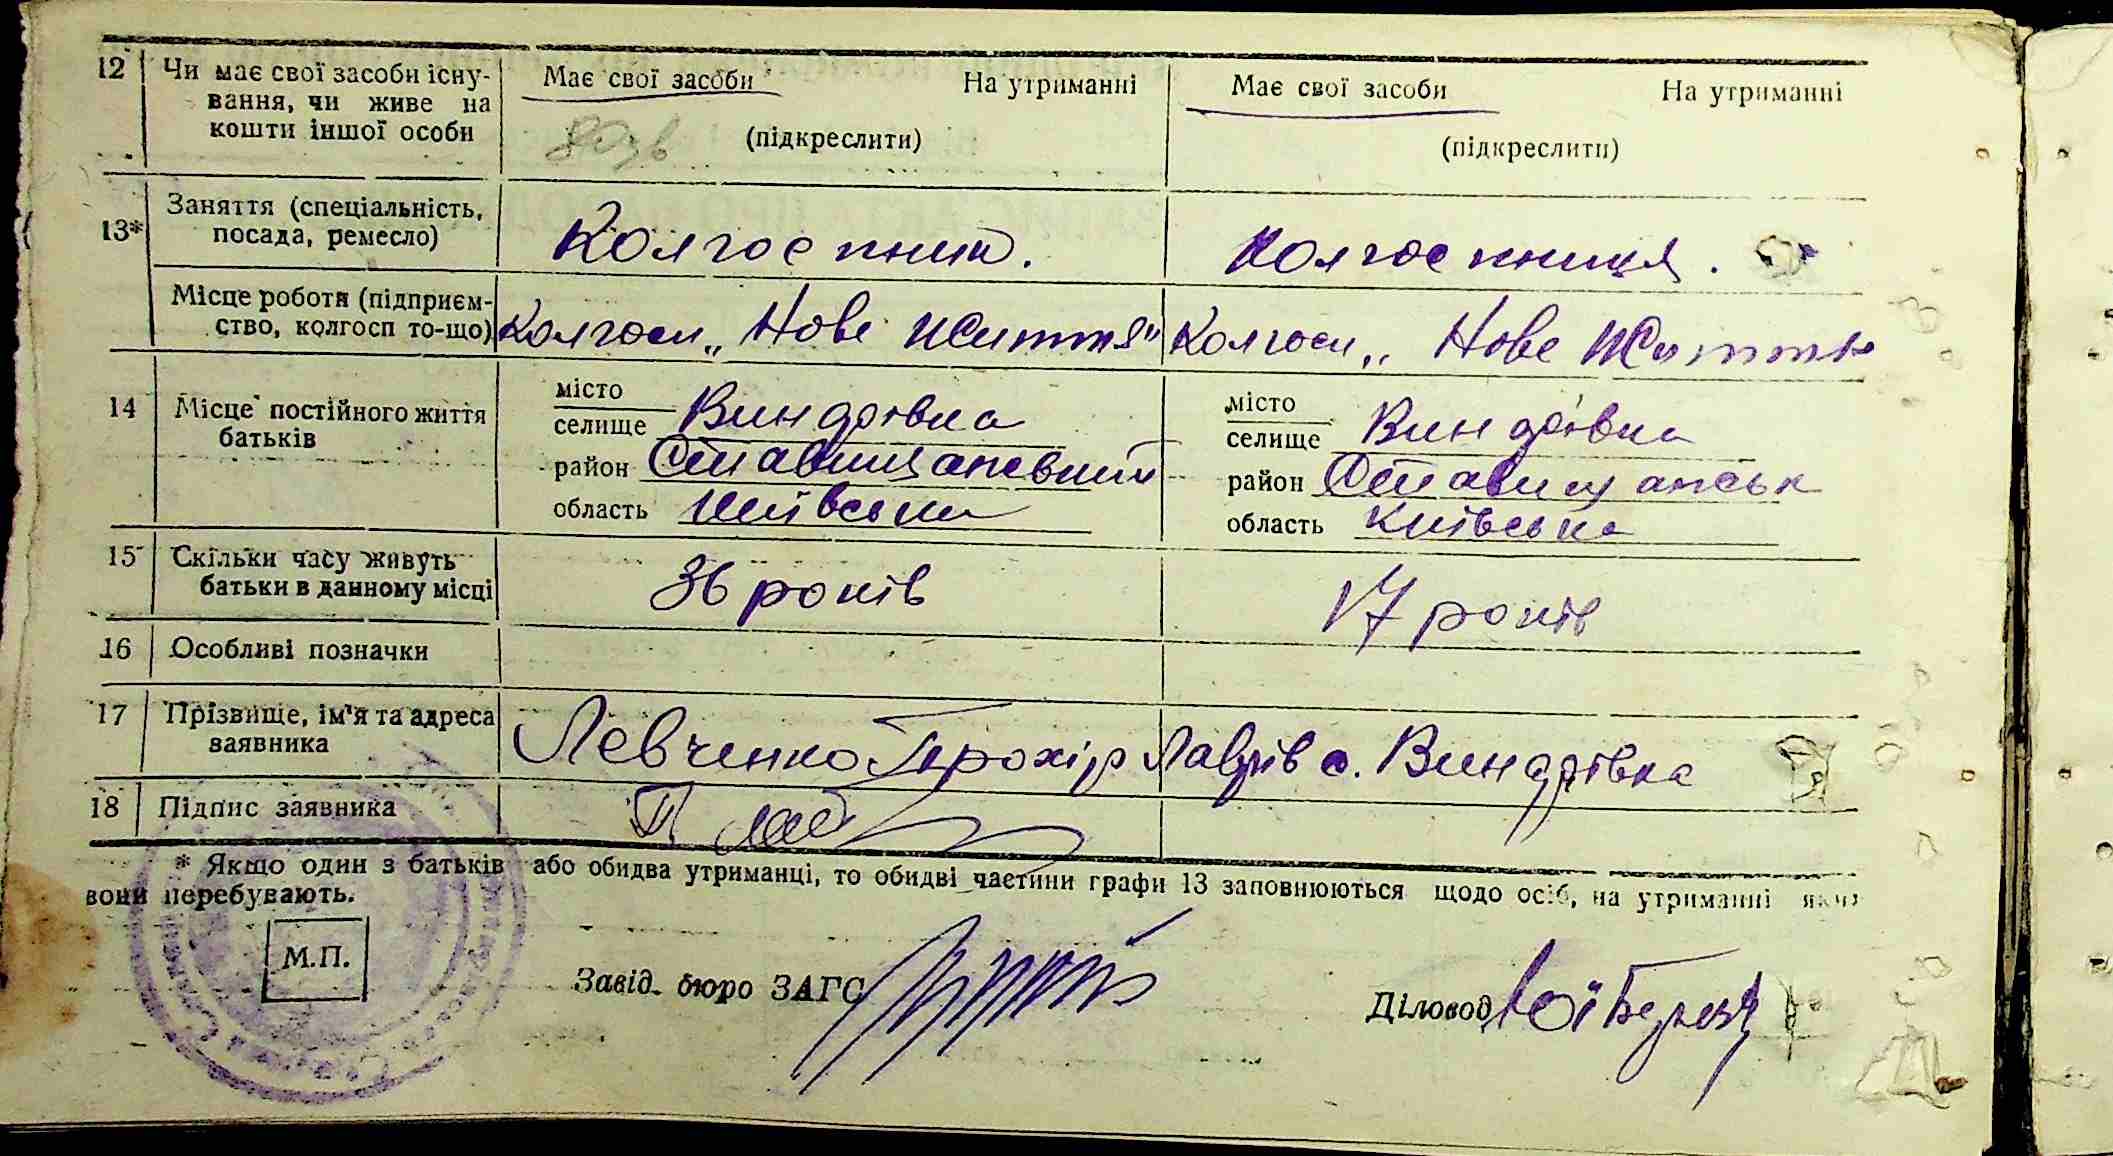 12 Чи має свої засоби існу- Має свої засоби На утриманні Має свої засоби На утриманні
вання, чи живе на
кошти іншої особи (підкреслити) (підкреслити)
13* Заняття (спеціальність, посада, ремесло) Колгоспник. Колгоспниця.
Місце роботи (підприєм-
ство, колгосп то-що) Колгосп „Нове Життя" Колгосп „Нове Життя
14 Місце постійного життя батьків
місто місто
селище Виндрівка селище Виндрівка
район Ставищанський район Ставищанськ
область Київська область Київська
15 Скільки часу живуть
батьки в данному місці 36 років 17 років
16 Особливі позначки
17 Прізвище, ім'я та адреса
заявника Левченко Прохір Лаврів с. Виндрівка
18 Підпис заявника
* Якщо один з батьків або обидва утриманці, то обидві частини графи 13 заповнюються щодо осіб, на утриманні яких
вони перебувають.
М.П.
Завід. бюро ЗАГС Діловод